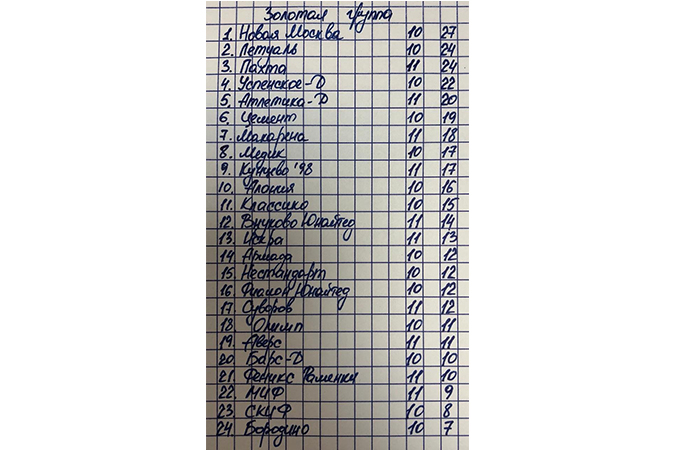 Золотая группа
1. Новая Москва 10 27
2. Летуаль 10 24
3. Пахта 11 24
4. Успенское-Д 10 22
5. Атлетика-Д 11 20
6. Цемент 10 19
7. Макарена 11 18
8. Медик 10 17
9. Кунцево '98 11 17
10. Алония 10 16
11. Классико 10 15
12. Внуково Юнайтед 11 14
13. Искра 11 13
14. Армада 10 12
15. Нестандарт 10 12
16. Фиамон Юнайтед 10 12
17. Суворов 11 12
18. Олимп 10 11
19. Аверс 11 11
20. Барс-Д 10 10
21. Феникс Раменки 11 10
22. МИФ 11 9
23. СКИФ 10 8
24. Бородино 10 7